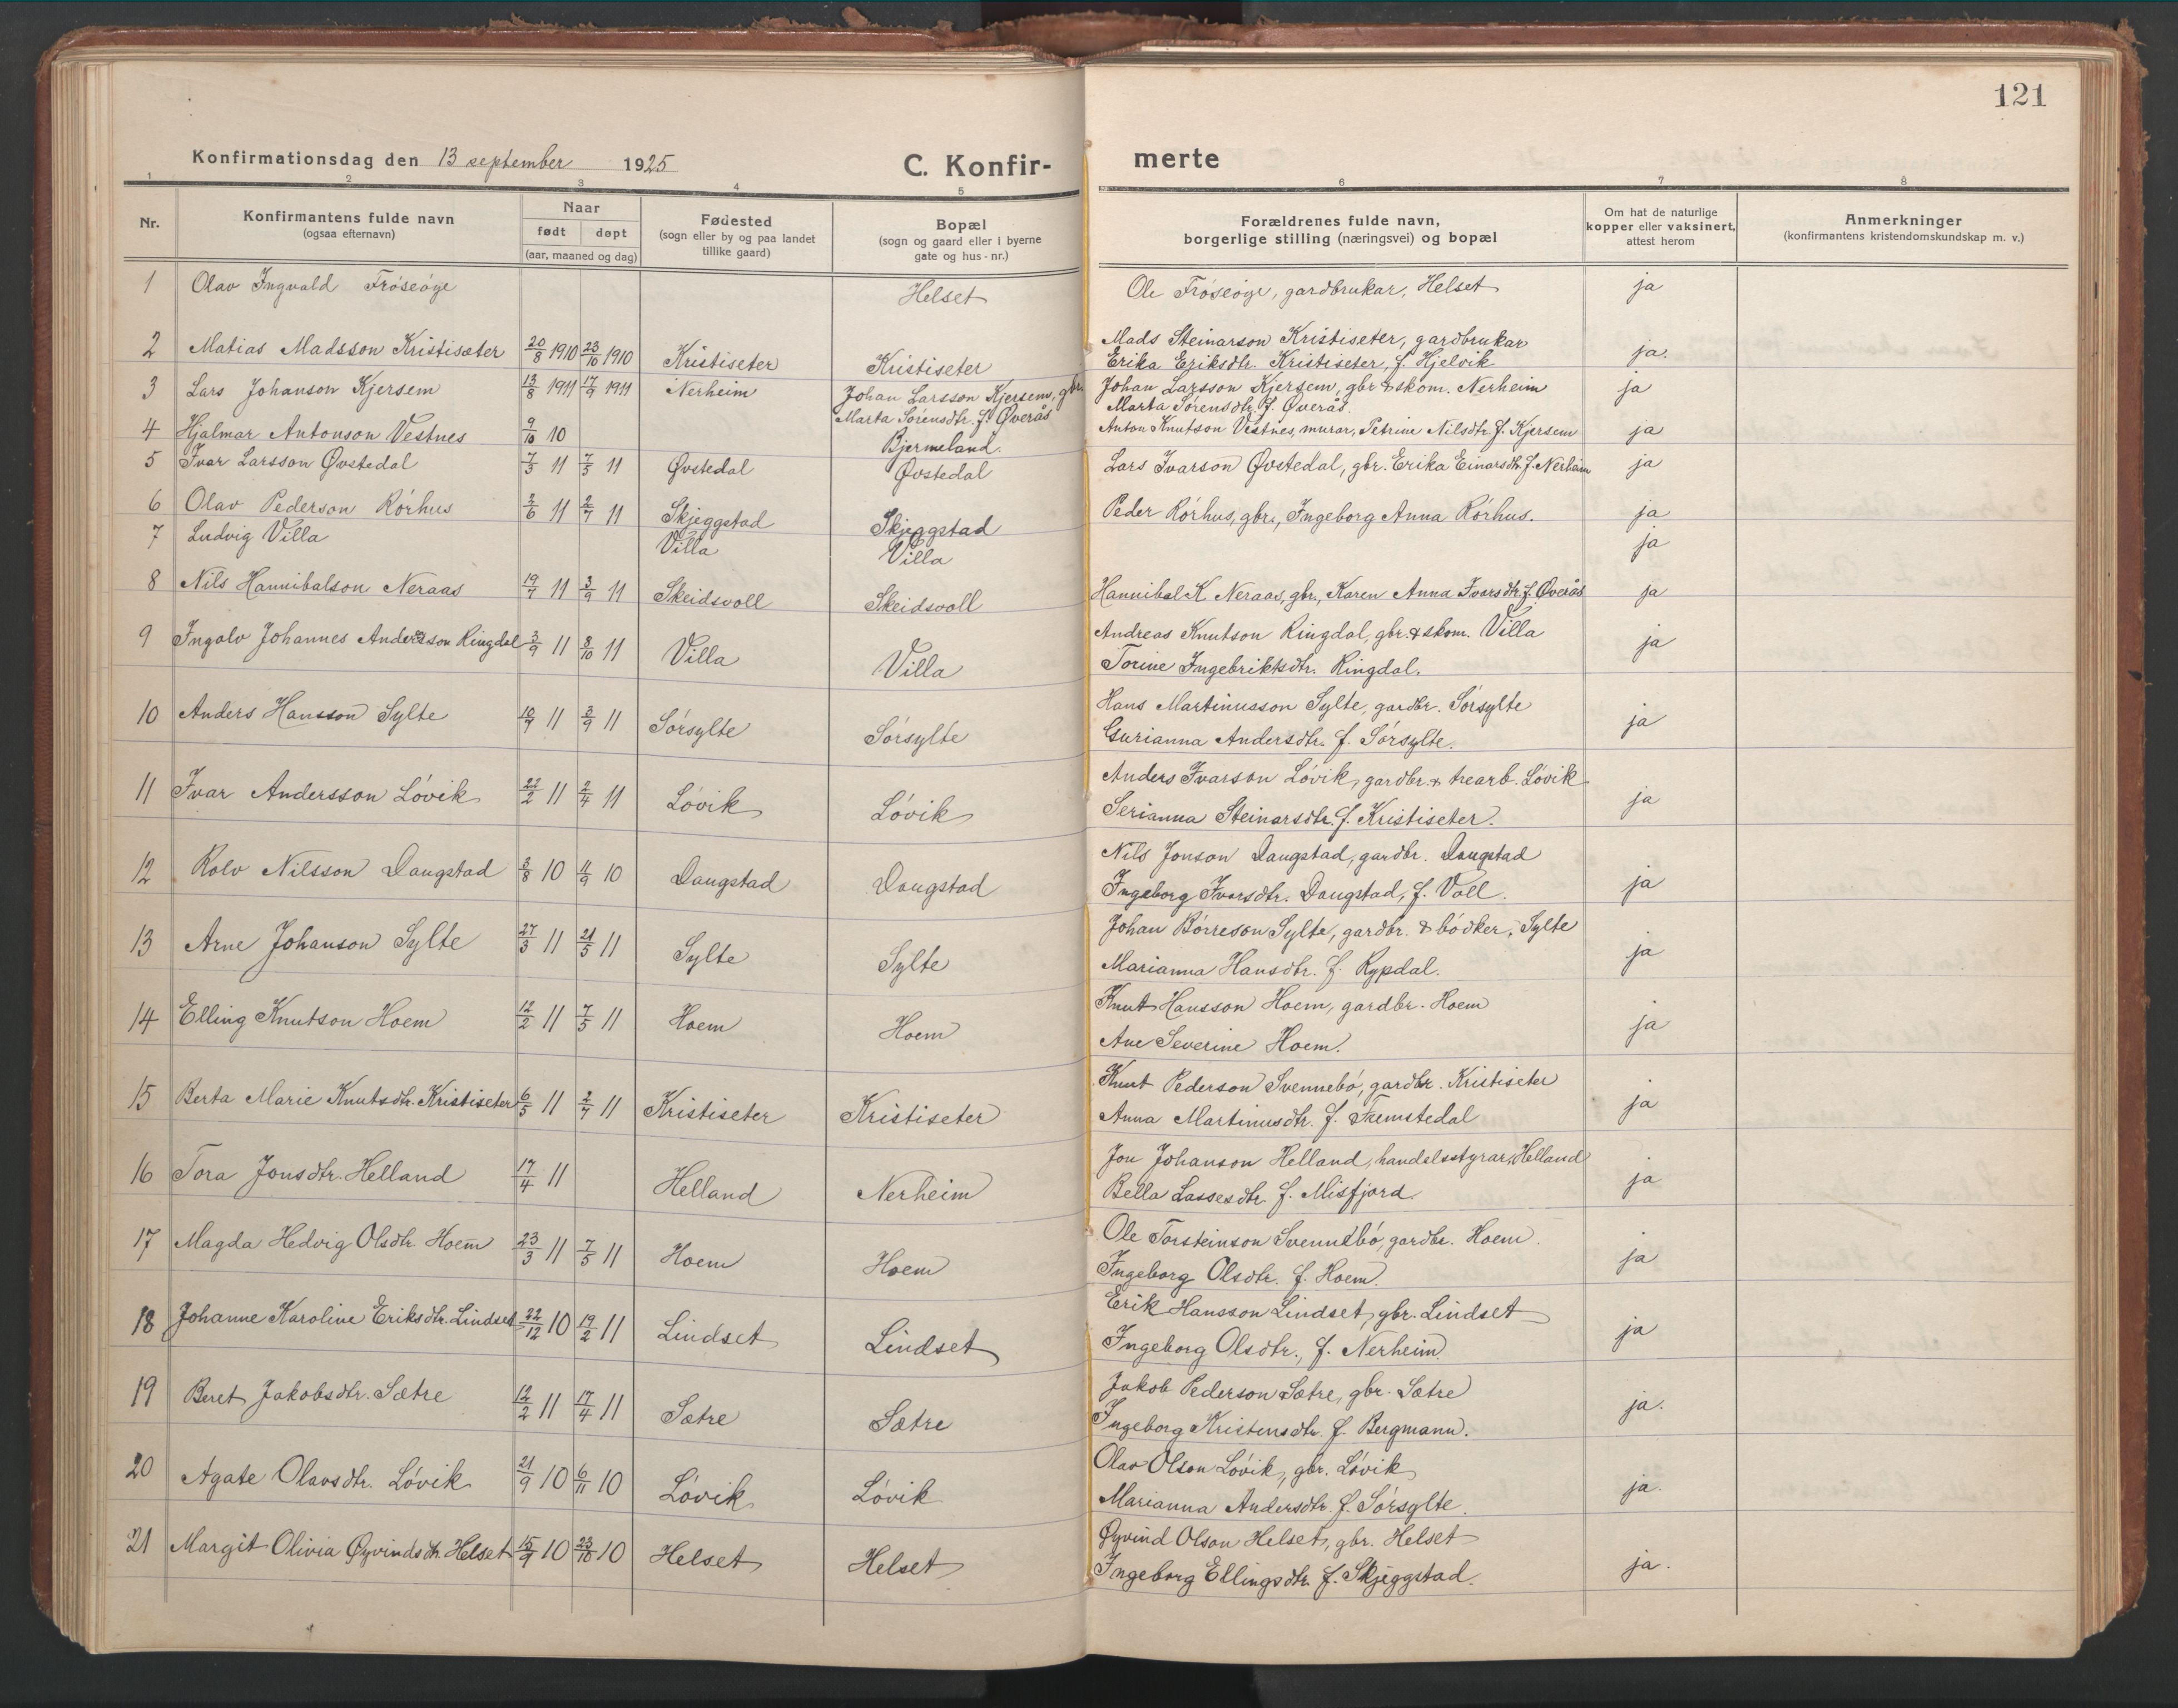 121
Konfirmationsdag den 13 september 1925 C. Konfir- merte
1 2 3 4 5 6 7 8
Nr. Konfirmantens fulde navn (ogsaa efternavn) Naar født døpt (aar, maaned og dag) Fødested (sogn eller by og paa landet tillike gaard) Bopæl (sogn og gaard eller i byerne gate og hus-nr.) Forældrenes fulde navn, borgerlige stilling (næringsvei) og bopæl Om hat de naturlige kopper eller vaksinert, attest herom Anmerkninger (konfirmantens kristendomskundskap m. v.)
1 Olav Ingvald Frøseøye Helset Ole Frøseøye, gardbrukar, Helset ja
2 Matias Madsson Kristiseter 20/8 1910 23/10 1910 Kristiseter Kristiseter Mads Steinarson Kristiseter, gardbrukar
Erika Eriksdtr. Kristiseter, f. Hjelvik ja.
3 Lars Johanson Kjersem 13/8 1911 17/9 1911 Nerheim Johan Larsson Kjersem, gbr Johan Larsson Kjersem, gbr & skom. Nerheim ja
Marta Sørensdtr. f. Øverås Marta Sørensdtr. f. Øverås.
4 Hjalmar Antonson Vestnes 9/10 10 Bjermeland. Anton Knutson Vestnes, murar, Petrine Nilsdtr. f. Kjersem ja
5 Ivar Larsson Øvstedal 7/3 11 7/5 11 Øvstedal Øvstedal Lars Ivarson Øvstedal, gbr. Erika Einarsdtr. f. Nerheim ja
6 Olav Pederson Rørhus 2/6 11 2/7 11 Skjeggstad Skjeggstad Peder Rørhus, gbr., Ingeborg Anna Rørhus. ja
7 Ludvig Villa Villa Villa ja
8 Nils Hannibalson Neraas 19/7 11 3/9 11 Skeidsvoll Skeidsvoll Hannibal K. Neraas, gbr., Karen Anna Ivarsdtr. f. Øverås ja
9 Ingolv Johannes Andersson Ringdal 3/9 11 8/10 11 Villa Villa Andreas Knutson Ringdal, gbr. & skom. Villa
Torine Ingebriktsdtr. Ringdal. ja
10 Anders Hansson Sylte 10/7 11 3/9 11 Sørsylte Sørsylte Hans Martinusson Sylte, gardbr. Sørsylte
Gurianna Andersdtr. f. Sørsylte. ja
11 Ivar Andersson Løvik 22/2 11 2/4 11 Løvik Løvik Anders Ivarson Løvik, gardbr. & trearb. Løvik
Serianna Steinarsdtr. f. Kristiseter. ja
12 Rolv Nilsson Daugstad 3/8 10 11/9 10 Daugstad Daugstad Nils Jonson Daugstad, gardbr. Daugstad
Ingeborg Ivarsdtr. Daugstad, f. Voll. ja
13 Arne Johanson Sylte 27/3 11 21/5 11 Sylte Sylte Johan Børreson Sylte, gardbr. & bødker, Sylte
Marianna Hansdtr. f. Rypdal. ja
14 Elling Knutson Hoem 12/2 11 7/5 11 Hoem Hoem Knut Hansson Hoem, gardbr. Hoem
Ane Severine Hoem. ja
15 Berta Marie Knutsdtr. Kristiseter 6/5 11 2/7 11 Kristiseter Kristiseter Knut Pederson Svennebø, gardbr. Kristiseter
Anna Martinusdtr. f. Fremstedal ja
16 Tora Jonsdtr. Helland 17/4 11 Helland Nerheim Jon Johanson Helland, handelsstyrar, Helland
Bella Lassesdtr. f. Misfjord. ja
17 Magda Hedvig Olsdtr. Hoem 23/3 11 7/5 11 Hoem Hoem Ole Torsteinson Svennebø, gardbr. Hoem.
Ingeborg Olsdtr. f. Hoem. ja
18 Johanne Karoline Eriksdtr. Lindset 22/12 10 19/2 11 Lindset Lindset Erik Hansson Lindset, gbr. Lindset
Ingeborg Olsdtr., f. Nerheim. ja
19 Beret Jakobsdtr. Sætre 12/2 11 17/4 11 Sætre Sætre Jakob Pederson Sætre, gbr. Sætre
Ingeborg Kristensdtr. f. Bergmann. ja.
20 Agate Olavsdtr. Løvik 21/9 10 6/11 10 Løvik Løvik Olav Olson Løvik, gbr. Løvik
Marianna Andersdtr. f. Sørsylte. ja.
21 Margit Olivia Øyvindsdtr. Helset 15/9 10 23/10 10 Helset Helset Øyvind Olson Helset, gbr. Helset
Ingeborg Ellingsdtr. f. Skjeggstad. ja.